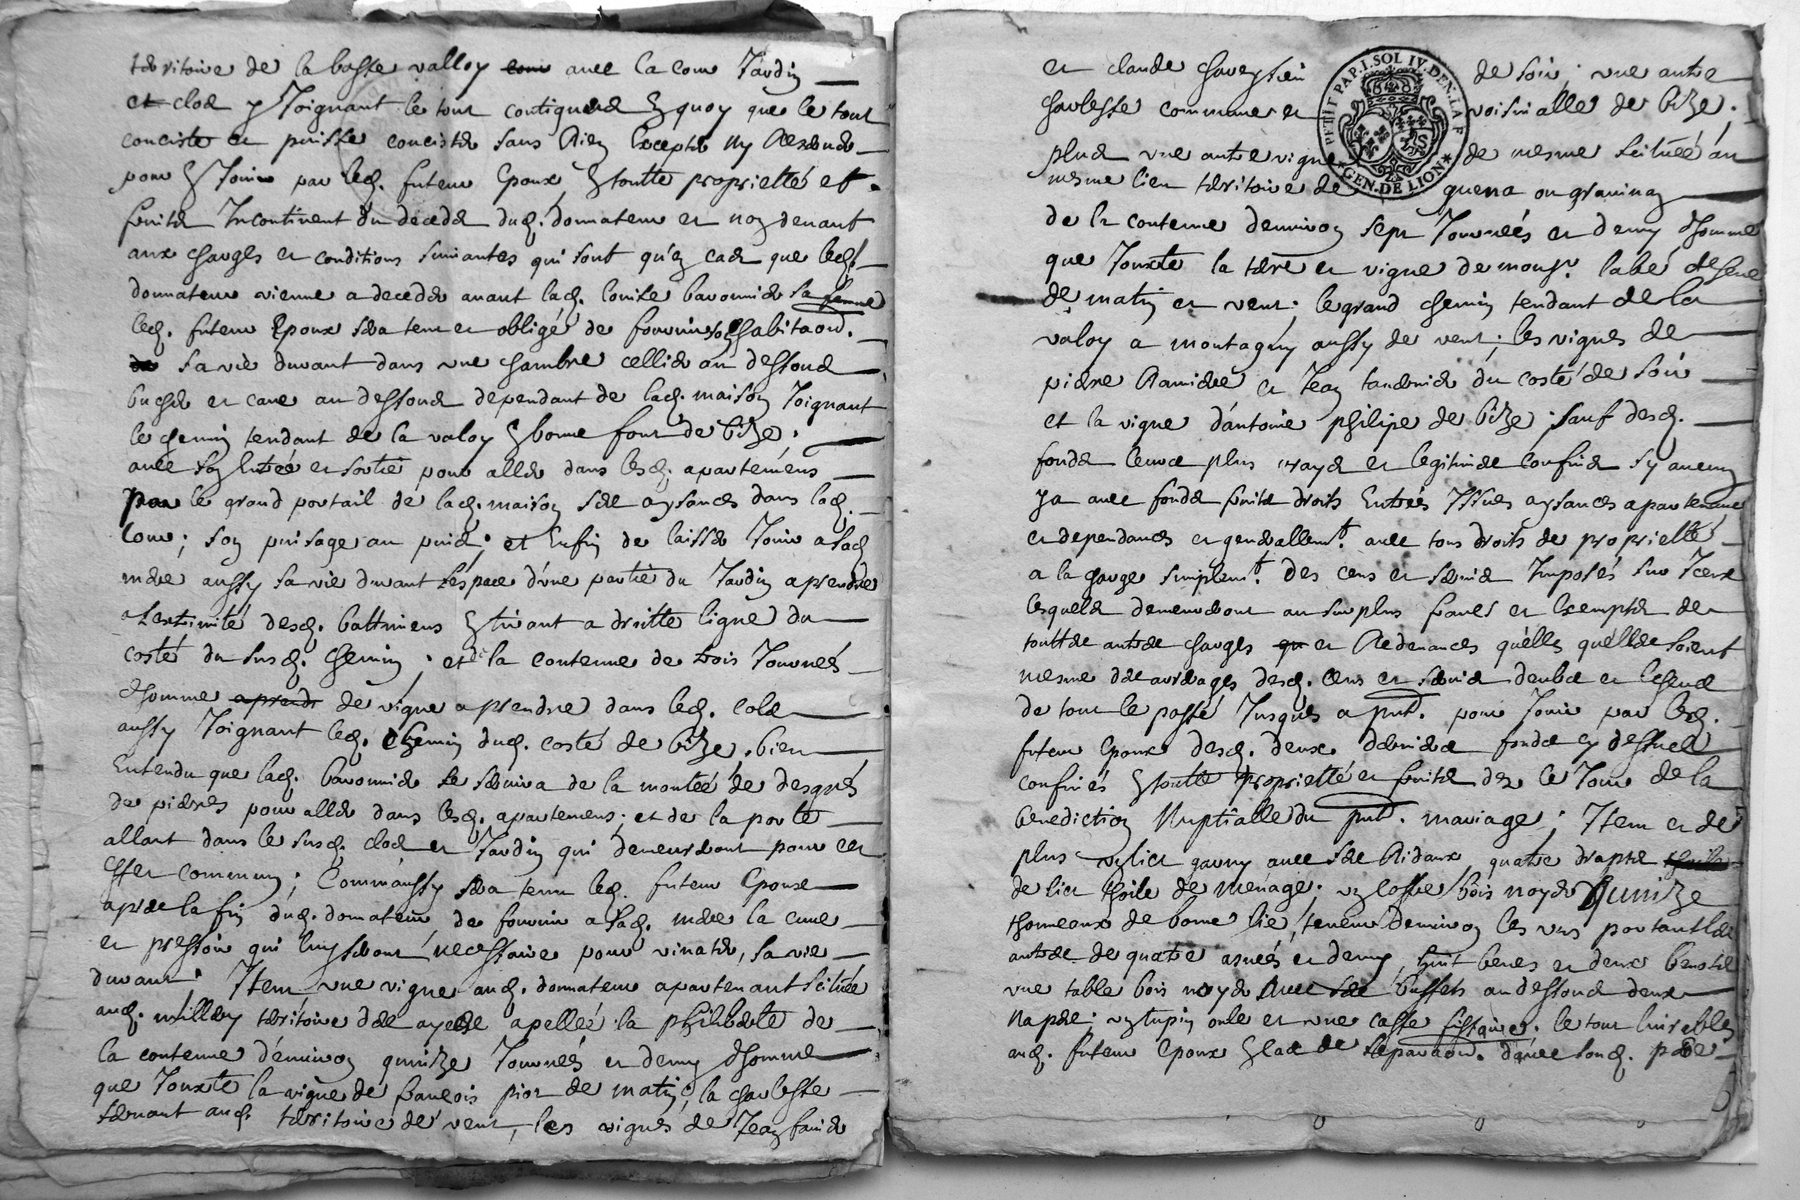 territoire de la basse valloy avec la cour Jardin
et clos y Joignant le tout contigues En quoy que le tout
conciste et puisse concister sans Rien Excepter ny Reserver
pour En Jouir par led. futeur Epoux En toutte proprietté et
fruits Incontinent du deceder dud. donnateur et non devant
aux charges et conditions suivantes qui sont qu'en cas que led.
donnateur vienne a deceder avant lad. Bavonnier sa femme
led. futeur Epoux sera tenu et obligé de fournir son habitaon.
sa vie durant dans une chambre cellier au dessous
bucher et cave au dessous dependant de lad. maison Joignant
le chemin tendant de la valoy En bonne font de bize,
avec son Entrée et sortie pour aller dans lesd. apartemens
par le grand portail de lad. maison ses aysances dans lad.
Cour; son puisage au puid; et Enfin de laisser Jouir a sad.
mere aussy sa vie durant l'espace d'une partie du Jardin a prendre
a l'extrimité desd. battimens En tirant a droitte ligne du
costé du susd. chemin; et de la contenue de trois Journées
d'homme a prendre de vigne a prendre dans led. clos
aussy Joignant led. chemin dud. costé de bize, bien
Entendu que lad. Bavonnier se servira de la montée de desgrés
de pierres pour aller dans lesd. apartemens; et de la porte
allant dans le susd. clos et Jardin qui demeureront pour cet
effet commun; Comm'aussy sera tenu led. futeur Epoux
apres la fin dud. donnateur de fournir a sad. mere la cuve
et pressoir qui luy seront necessaire pour vinater, sa vie
durant. Item une vigne aud. donnateur apartenant scituée
aud. millery territoire des ayes apellée la philiberte de
la contenue d'environ quinze Journées et demy d'homme
que Jouxte la vigne de francois pior de matin; la charleste
servant aud. territoire de vent, les vignes de Jean fanier
et claude chaveyrieu de soir; une autre
charlesse commune et voisinalle de bize;
plus une autre vigne de mesme scituée au
mesme lieu territoire de guerra ou gravinan
de la contenue d'environ sept Journées et demy d'homme
que Jouxte la terre et vigne de monsr. l'abé de seve
de matin et vent; le grand chemin tendant de la
valoy a montagny aussy de vent; les vignes de
pierre Ramier et Jean du costé de soir
et la vigne d'antoine philipe de bize; sauf desd.
fonds leurs plus vrayes et legitimes confins sy aucun
y a avec fonds fruits droits Entrées Issues aysances apartenances
et dependances et generallemt. avec tous droits de proprietté
a la charge simplemt. des cens et servis Imposés sur Iceux
lesquels demeureront au surplus francs et Exempts de
touttes autres charges et Redevances quelles quelles soient
mesme des arrerages desd. cens et servis deubs et Echeus
de tout le passé Jusques a pnt. pour Jouir par led.
futeur Epoux desd. deux derniers fonds cy dessus
confinés En toutte proprietté et fruits dez le Jour de la
benediction Nuptialle du pnt. mariage; Item et de
plus un lict garny avec ses Ridaux, quatre drapts
de lict thoile de menage; un coffre bois noyer Quinze
thonneaux de bonne lie, teneur d'environ les uns portant les
autres de quatre asnées et demy, huit benes et deux benots
une table bois noyer avec ses buffets au dessous deux
Napes; un tupin oule et une casse le tout luivreblés
aud. futeur Epoux En cas de separaon. d'avec sond. pere
PETIT PAP. I. SOL IV. DEN. LA F. GEN. DE LION